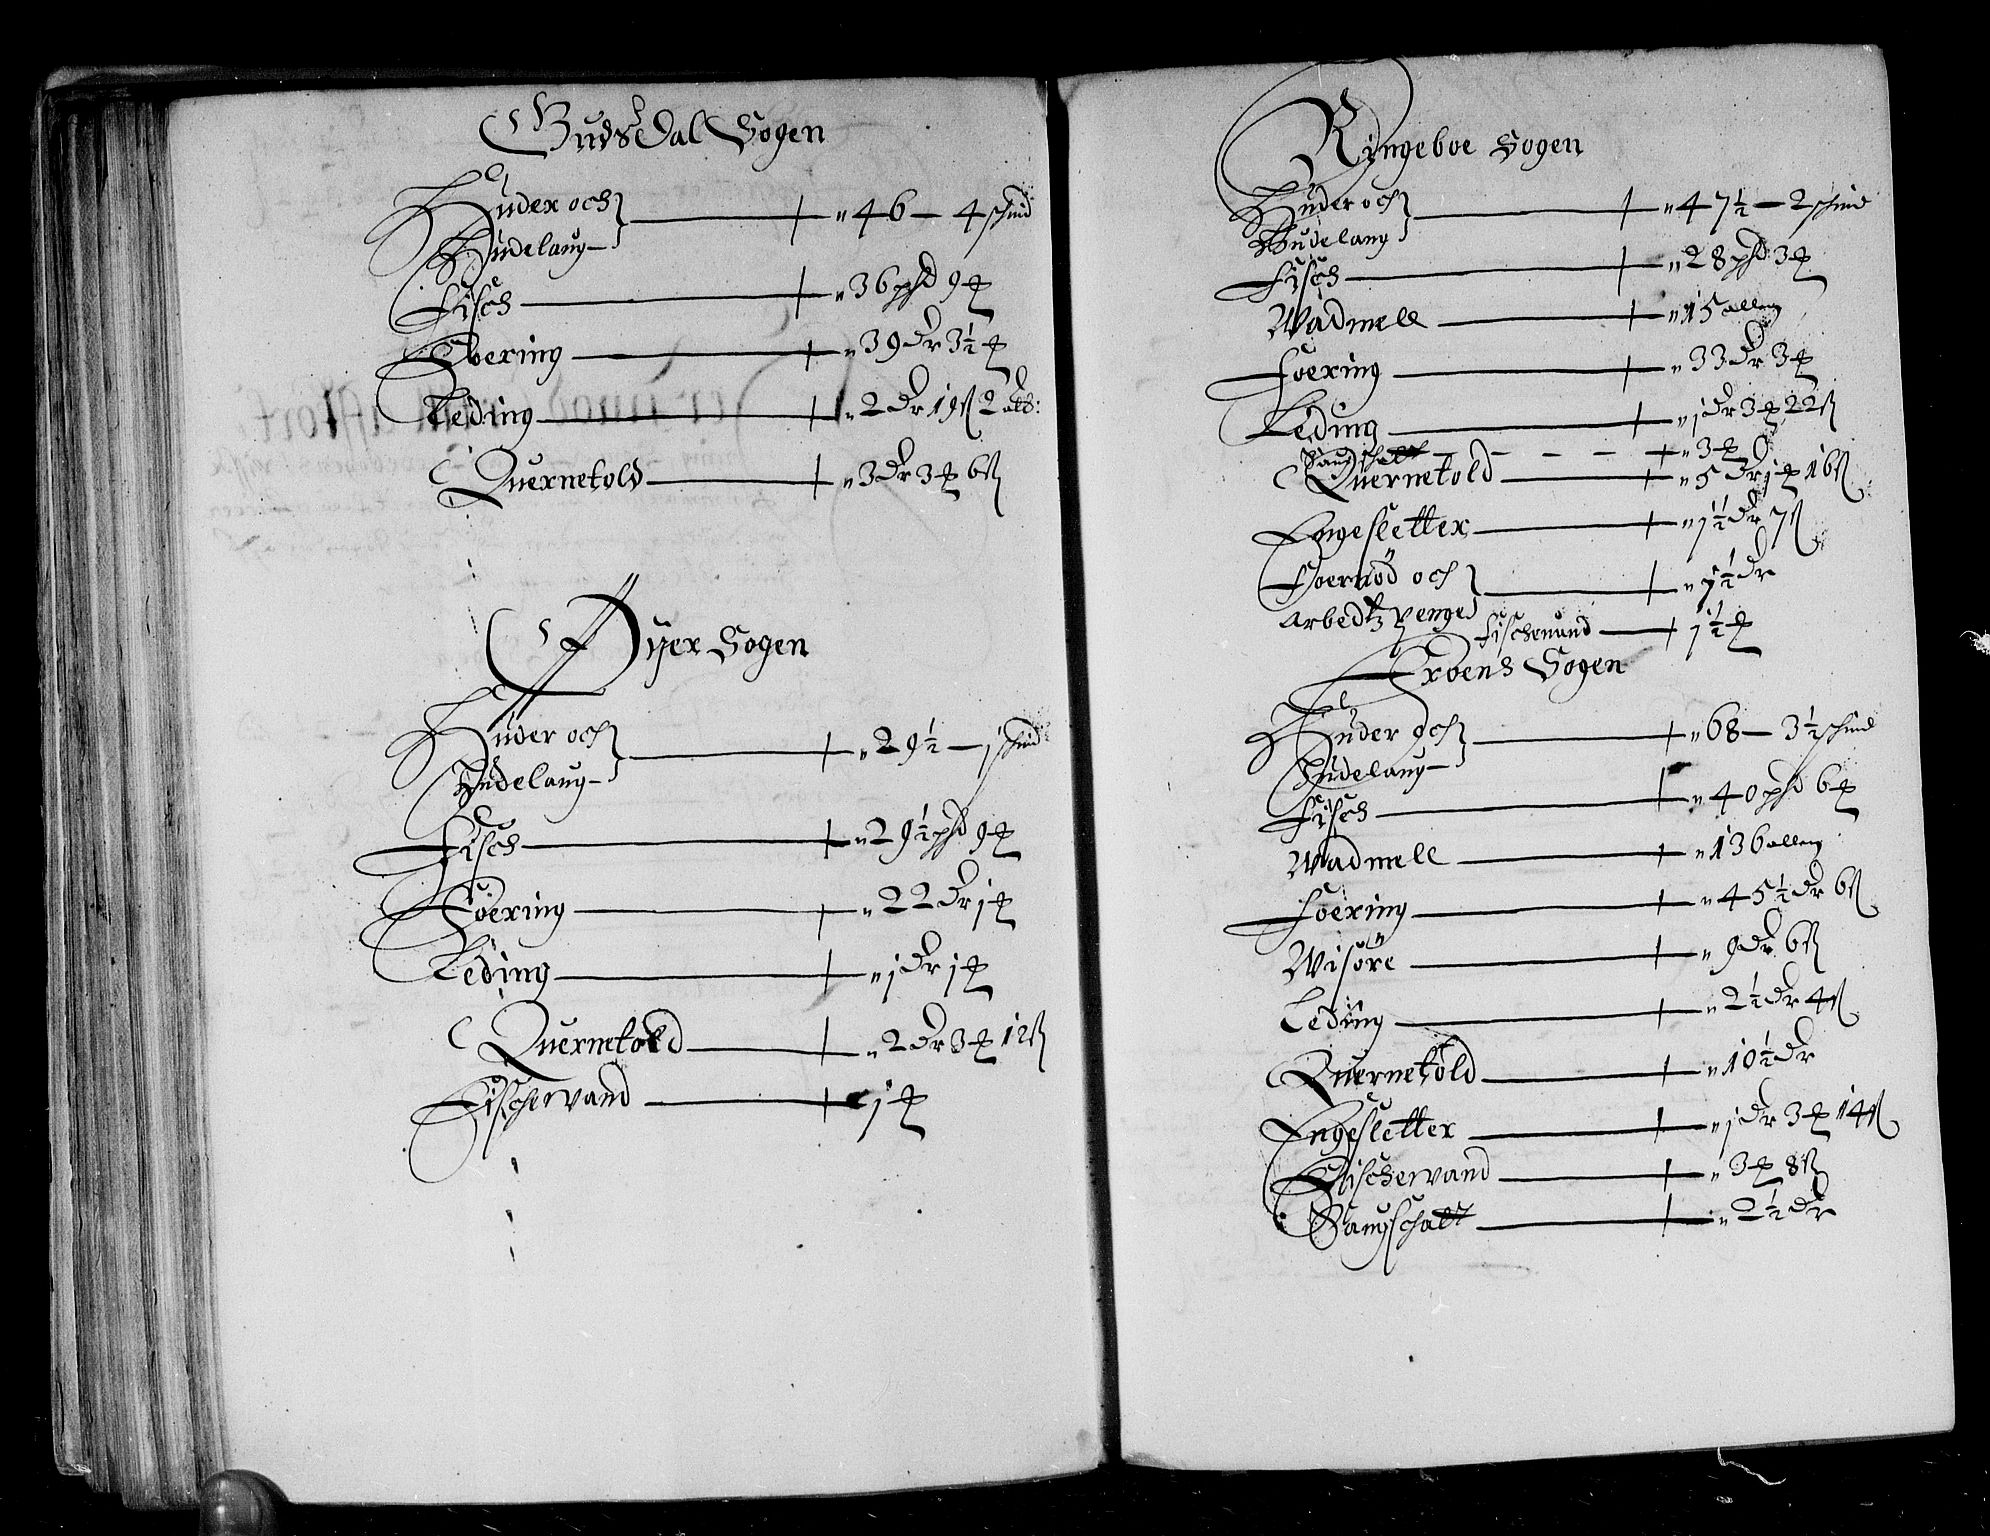 Gudsdal Sogen
Huder och
Hudelaug — 46 — 4 schind
Fisch — 36 pſd 9 ꝑ
Foering — 39 dr 3½ ꝑ
Leding — 2 dr 19 ß 2 alb:
Quernetold — 3 dr 3 ꝑ 6 ß
Øyer Sogen
Huder och
Hudelaug — 29½ — j schind
Fisch — 29½ pſd 9 ꝑ
Foering — 22 dr j ꝑ
Leding — j dr j ꝑ
Quernetold — 2 dr 3 ꝑ 12 ß
Fischewand — j ꝑ
Ringeboe Sogen
Huder och
Hudelaug — 47½ — 2 schind
Fisch — 28 pſd 3 ꝑ
Wadmell — 15 allen
Foering — 33 dr 3 ꝑ
Leding — j dr 3 ꝑ 22 ß
Saugschatt — 3 ꝑ
Quernetold — 5 dr j ꝑ 16 ß
Engesletter — 1½ dr 7 ß
Foernöd och
Arbedtz penge — j½ dr
Fischewand — j½ ꝑ
Froens Sogen
Huder och
Hudelaug — 68 — 3½ schind
Fisch — 40 pſd 6 ꝑ
Wadmell — 136 allen
Foering — 45½ dr 6 ß
Wisöre — 9 dr 6 ß
Leding — 2½ dr 4 ß
Quernetold — 10½ dr
Engesletter — j dr 3 ꝑ 14 ß
Fischewand — 3 ꝑ 8 ß
Saugschatt — 2½ dr